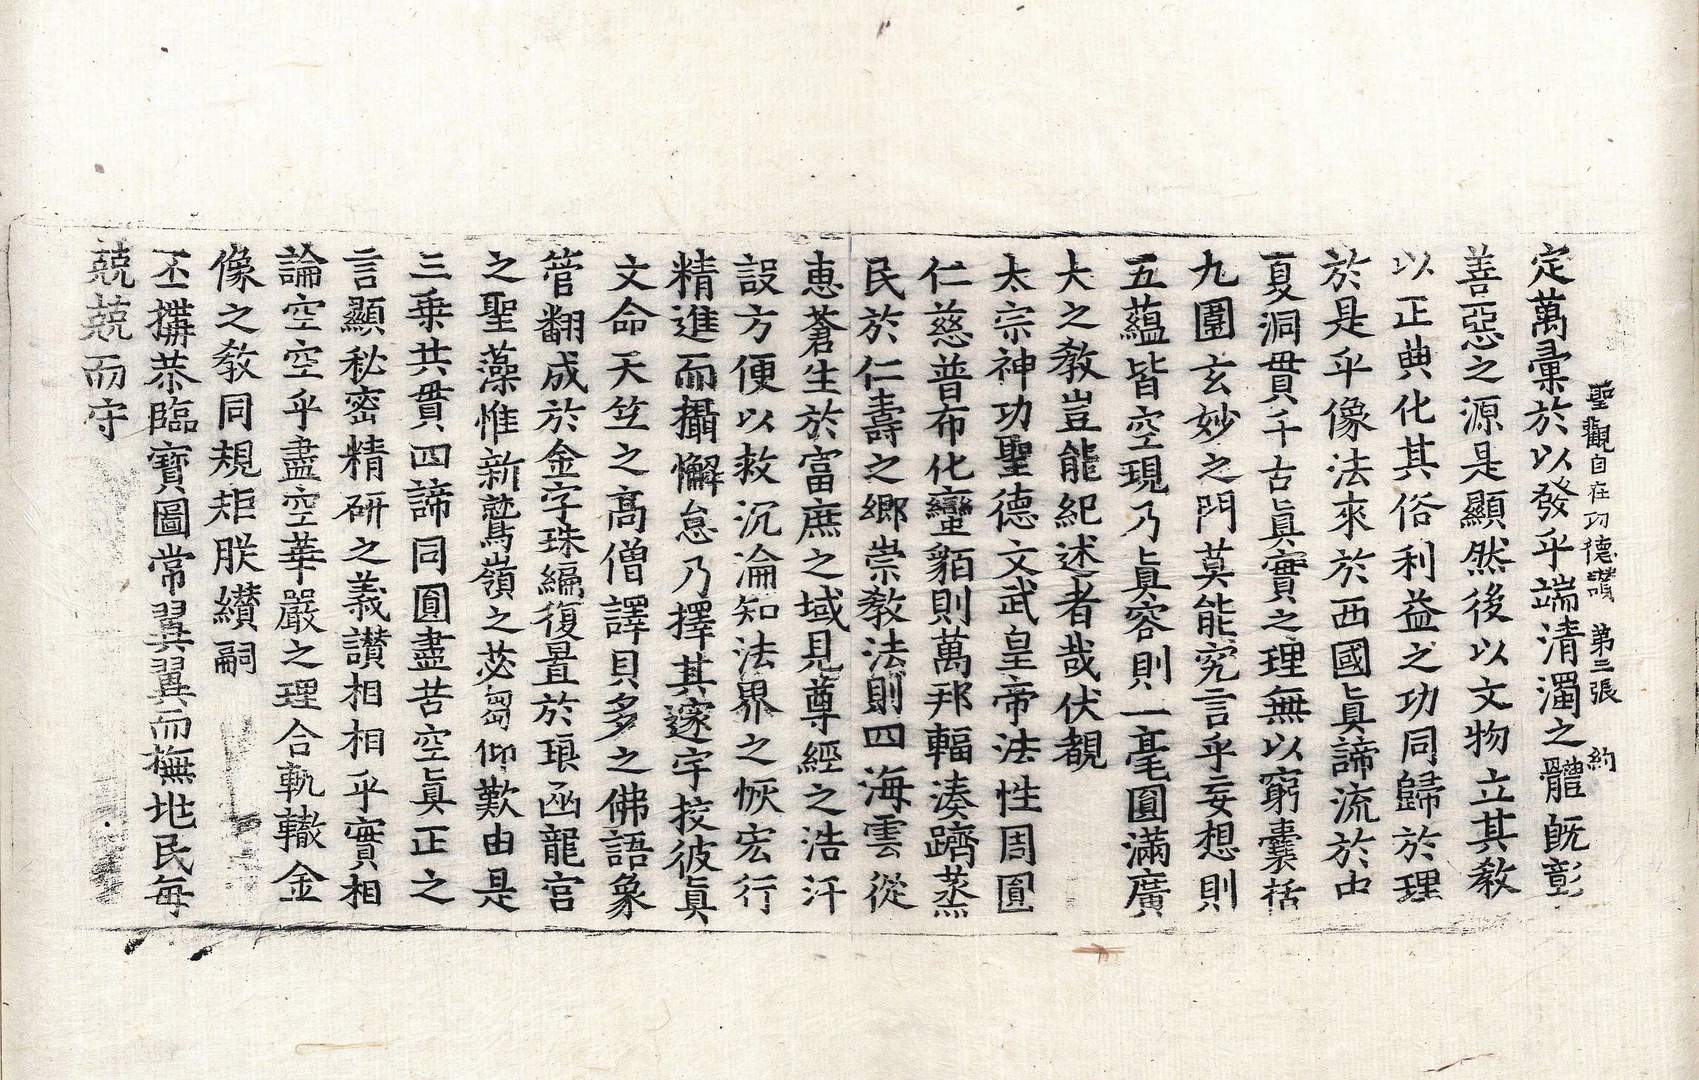 聖觀自在功德讚 第三張 約
定萬彙於以發乎端清濁之體旣彰
善惡之源是顯然後以文物立其敎
以正典化其俗利益之功同歸於理
於是乎像法來於西國眞諦流於中
夏洞貫千古眞實之理無以窮囊括
九圍玄妙之門莫能究言乎妄想則
五蘊皆空現乃眞容則一毫圓滿廣
大之敎豈能紀述者哉伏覩
太宗神功聖德文武皇帝法性周圓
仁慈普布化蠻貊則萬邦輻湊躋蒸
民於仁壽之鄉崇敎法則四海雲從
惠蒼生於富庶之域見尊經之浩汗
設方便以救沉淪知法界之恢宏行
精進而攝懈怠乃擇其邃宇挍彼眞
文命天竺之高僧譯貝多之佛語象
管翻成於金字珠編復置於琅函龍宮
之聖藻惟新鷲嶺之苾芻仰歎由是
三乘共貫四諦同圓盡苦空眞正之
言顯秘密精硏之義讃相相乎實相
論空空乎盡空華嚴之理合軌轍金
像之敎同規矩朕纉嗣
丕搆恭臨寶圖常翼翼而撫地民每
兢兢而守